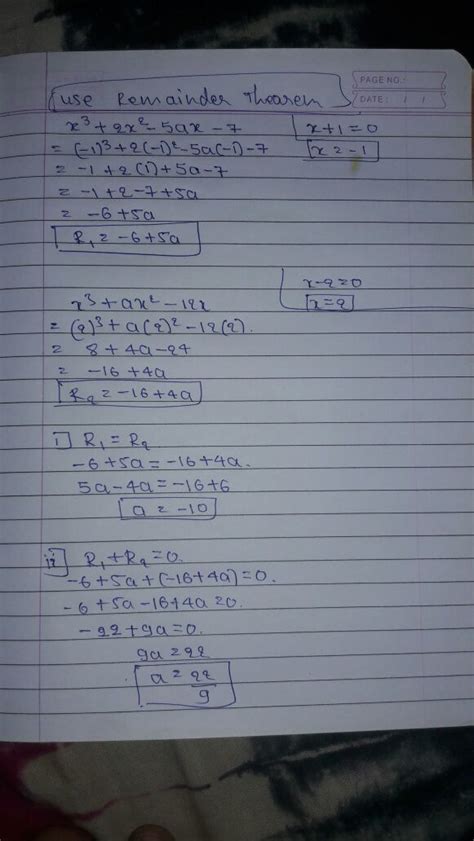 PAGE NO.:
DATE: / /
use Remainder Theorem
x³+2x²-5ax-7
x+1=0
= (-1)³+2(-1)²-5a(-1)-7
x=-1
= -1+2(1)+5a-7
= -1+2-7+5a
= -6+5a
R₁ = -6+5a
x-2=0
x³+ax²-12x
x=2
= (2)³+a(2)²-12(2).
= 8+4a-24
= -16+4a
R₂ = -16+4a
i] R₁=R₂
-6+5a=-16+4a.
5a-4a=-16+6
a = -10
ii] R₁+R₂=0.
-6+5a+(-16+4a)=0.
-6+5a-16+4a=0.
-22+9a=0.
9a=22
a = 22/9